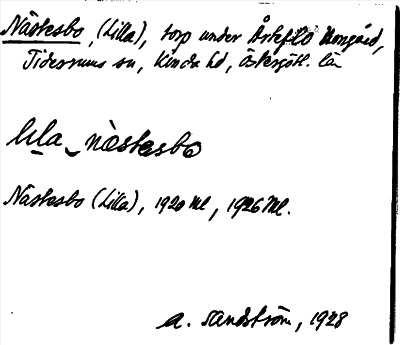 Nästesbo, (Lilla), torp under Årteflo Kungård,
Tidersrums sn, Kinda hd, Östergötl. län
lɩla nästesbo
Nästesbo (Lilla), 1920 Ml, 1926 Ml.
A. Sandström, 1928